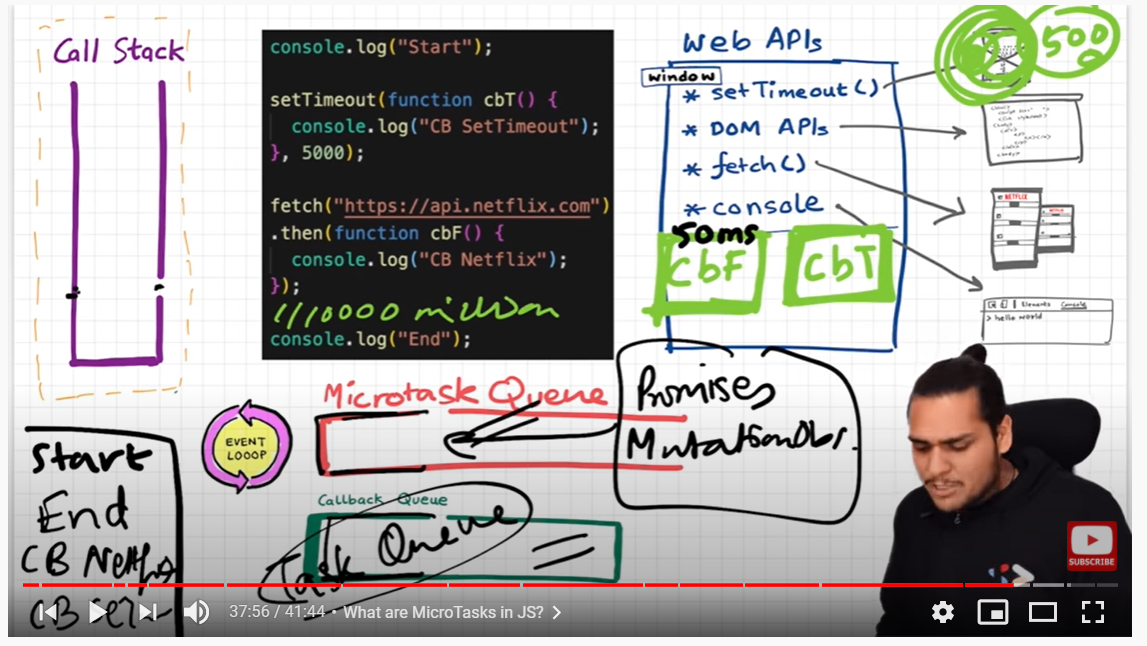 Call Stack
console.log("Start");
setTimeout(function cbT() {
console.log("CB SetTimeout");
}, 5000);
fetch("https://api.netflix.com")
.then(function cbF() {
console.log("CB Netflix");
});
console.log("End");
million
Web APIs
window
* setTimeout()
* DOM APIs
* fetch()
* console
500
50ms
CbF
CbT
NETFLIX
Elements Console
> hello world
Microtask Queue
Promises
MutationObs.
EVENT
LOOOP
Callback Queue
Task Queue
Start
End
CB
CB
SUBSCRIBE
37:56 / 41:44 • What are MicroTasks in JS? >